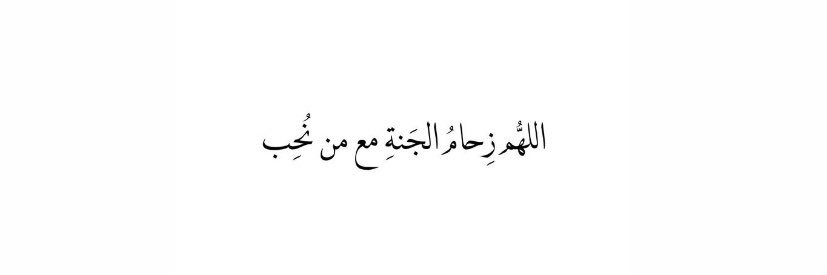 اللهُّم زِحامُ الجَنةِ مع من نُحِب